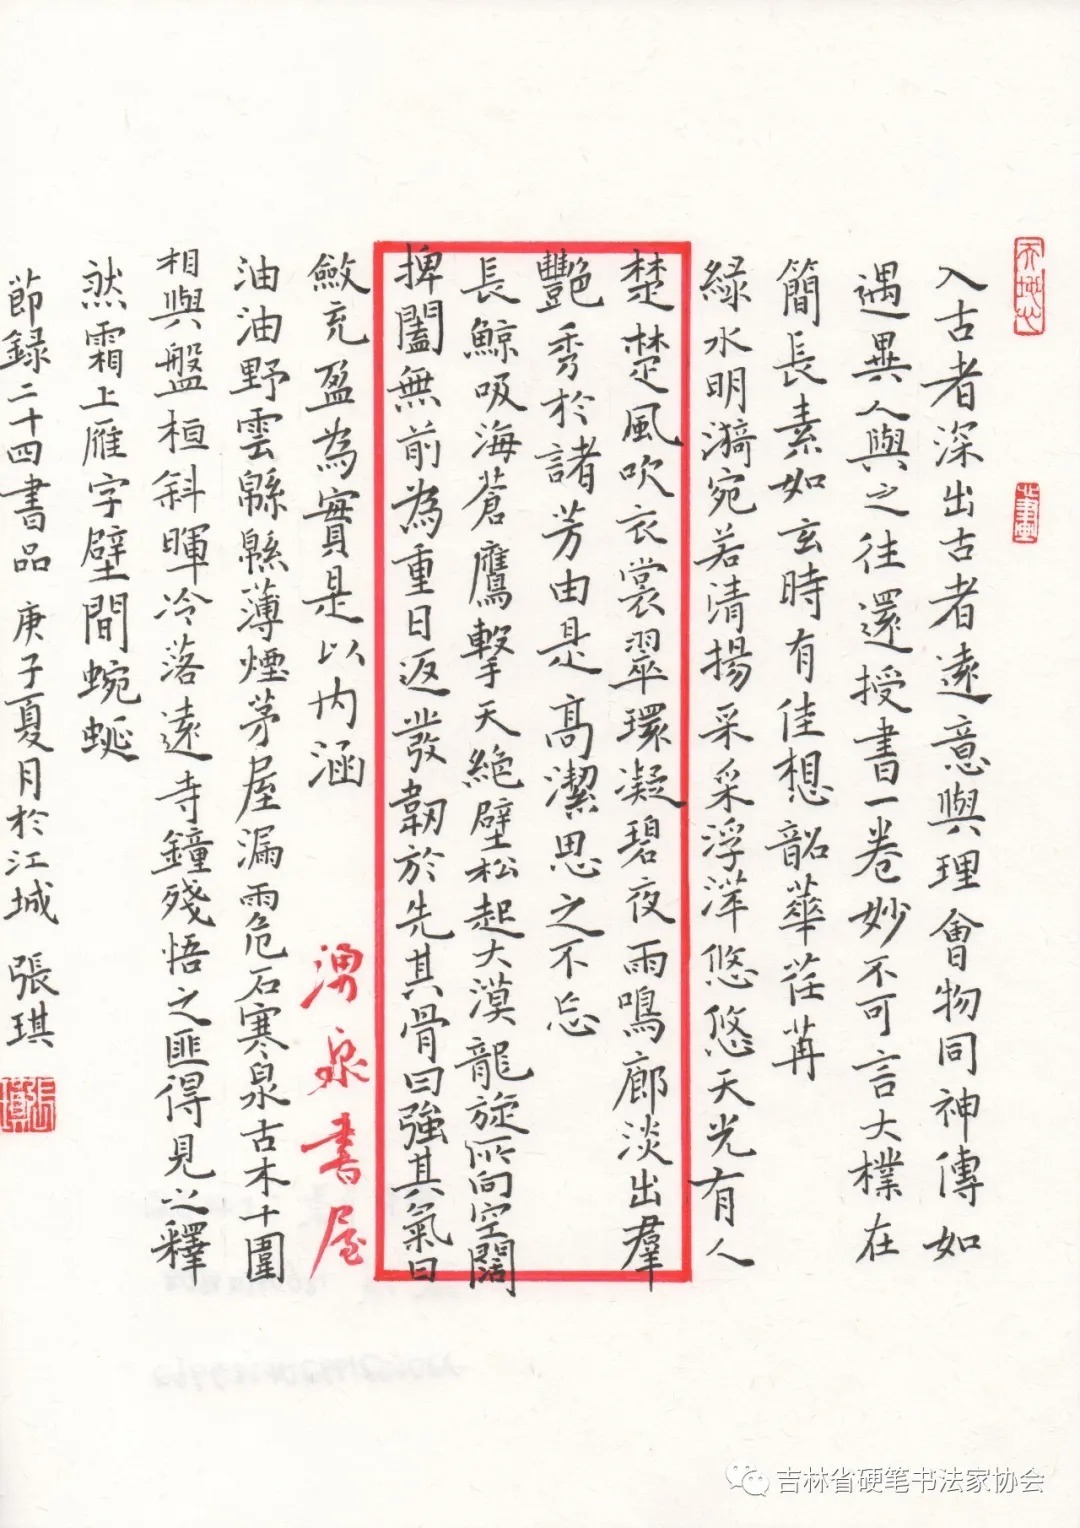 入古者深出古者遠意與理會物同神傳如
遇異人與之往還授書一卷妙不可言大樸在
簡長素如玄時有佳想韶華荏苒
緑水明漪宛若清揚采采浮萍悠悠天光有人
楚楚風吹衣裳翠環凝碧夜雨鳴廊淡出羣
艷秀於諸芳由是高潔思之不忘
長鯨吸海蒼鷹擊天絶壁松起大漠龍旋所向空闊
捭闔無前為重日返發韌於先其骨曰強其氣曰
斂充盈為實是以内涵
湧泉書屋
油油野雲緜緜薄煙茅屋漏雨危石寒泉古木十圍
相與盤桓斜暉冷落遠寺鐘殘悟之匪得見之釋
然霜上雁字壁間蜿蜒
節録二十四書品 庚子夏月於江城 張琪
吉林省硬笔书法家协会